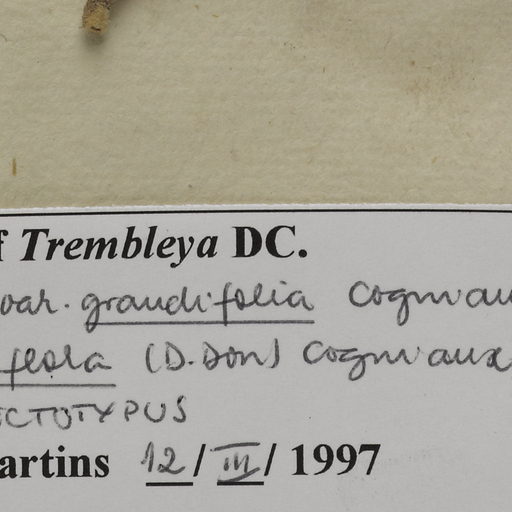 f Trembleya DC.
var. grandifolia Cogniau
flora (D. Don) Cogniaux
CTOTYPUS
artins 12/III/1997